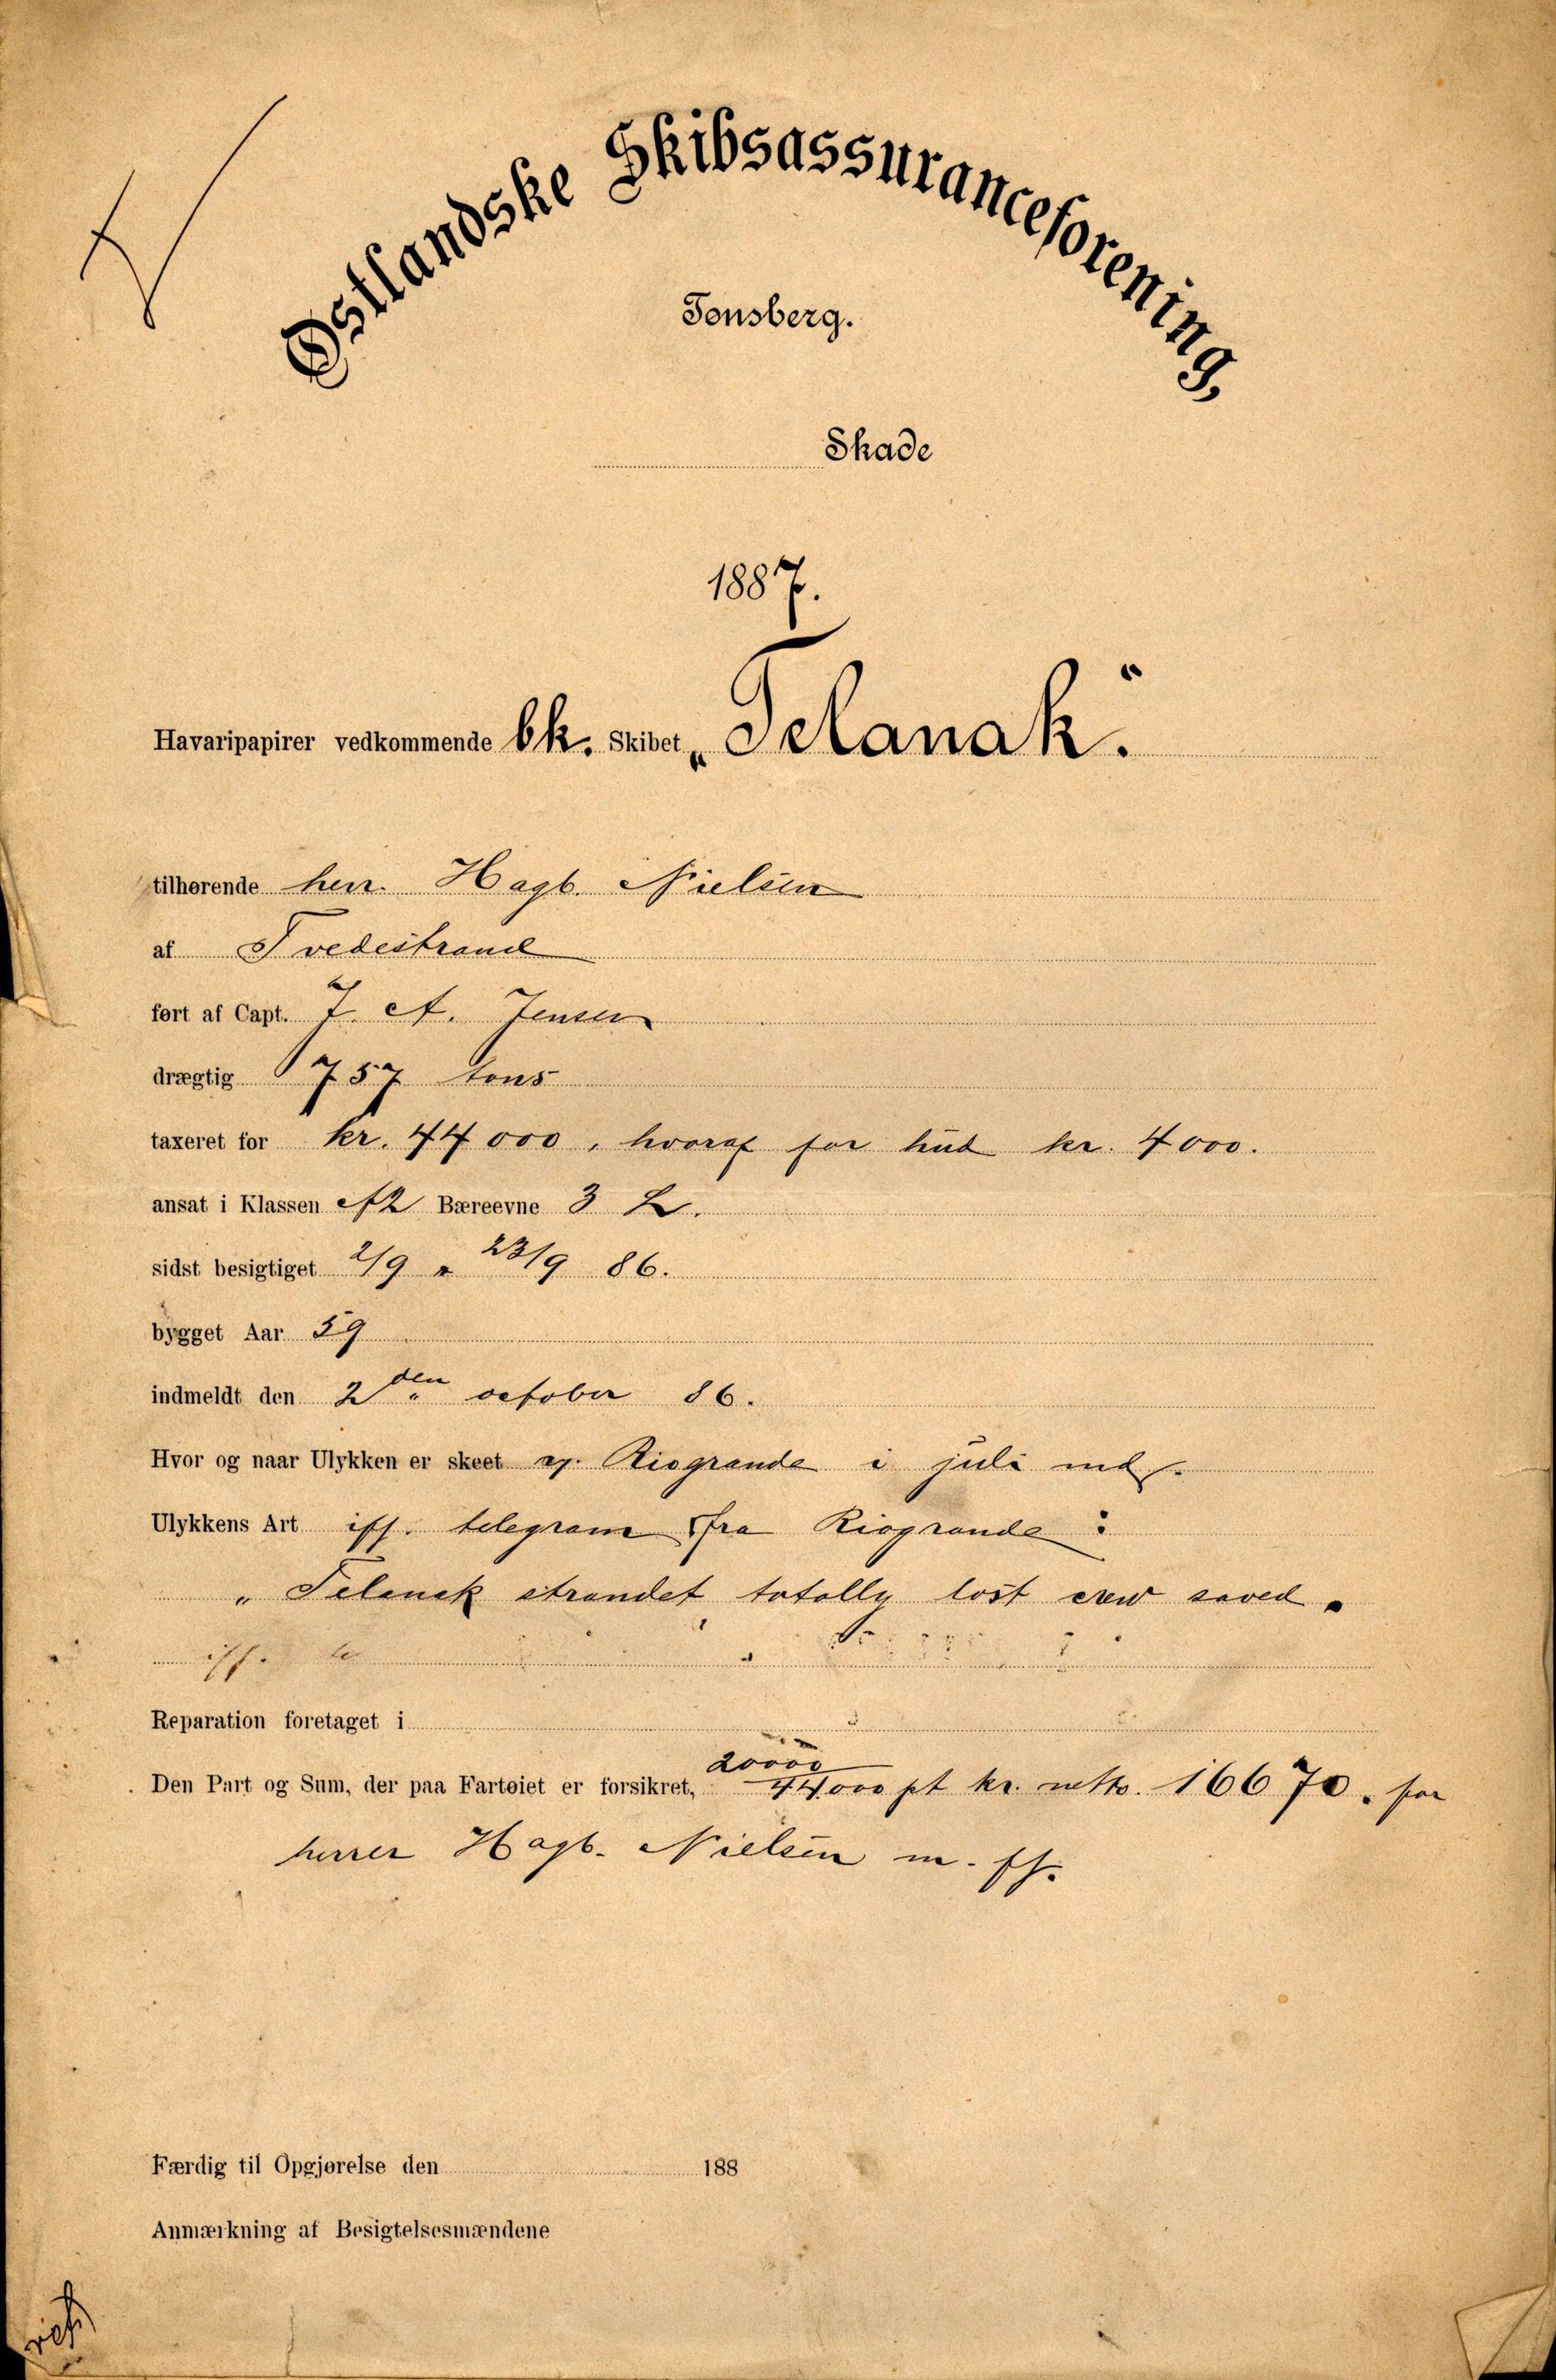 Østlandske Skibsassuranceforening,
Tønsberg.
Skade
1887.
Havaripapirer vedkommende bk. Skibet „Telanak".
tilhørende herr. Hagb. Nielsen
af Tvedestrand
ført af Capt. J. A. Jensen
drægtig 757 tons
taxeret for kr. 44000, hvoraf for hud kr. 4000.
ansat i Klassen A2 Bæreevne 3 L.
sidst besigtiget 2/9 " 23/9 86.
bygget Aar 59
indmeldt den 2den october 86.
Hvor og naar Ulykken er skeet v. Riogrande i juli md.
Ulykkens Art iff. telegram fra Riogrande :
„ Telanak strandet totally lost crew saved.
iff. te
Reparation foretaget i
Den Part og Sum, der paa Fartøiet er forsikret, 20000/44000 pt kr. netto. 16670. for
herrer Hagb. Nielsen m. fl.
Færdig til Opgjørelse den 188
Anmærkning af Besigtelsesmændene